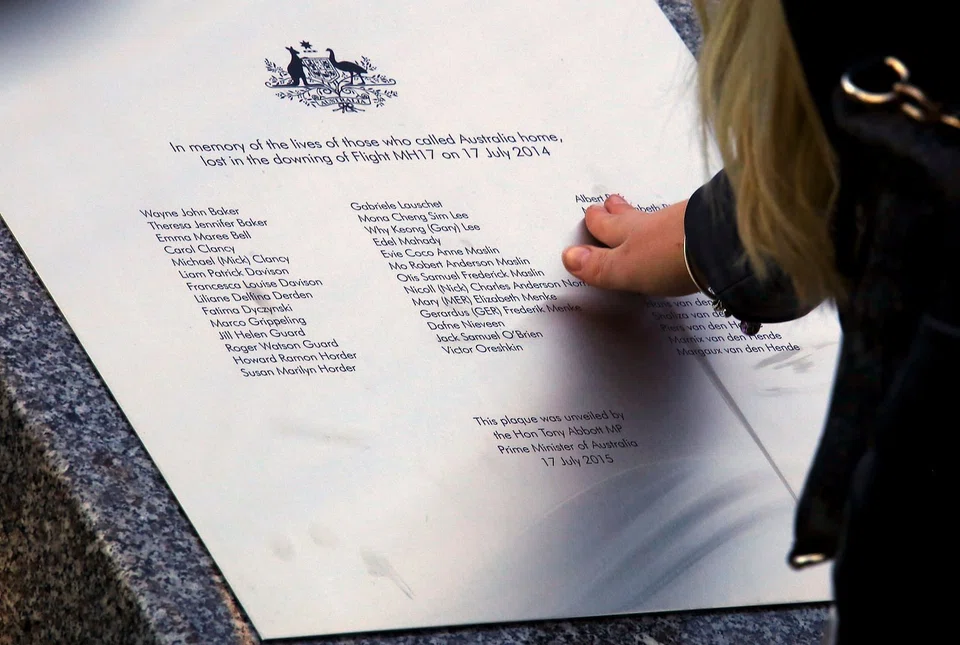 AUSTRALIA
In memory of the lives of those who called Australia home,
lost in the downing of Flight MH17 on 17 July 2014
Wayne John Baker
Theresa Jennifer Baker
Emma Maree Bell
Carol Clancy
Michael (Mick) Clancy
Liam Patrick Davison
Francesca Louise Davison
Liliane Dellina Derden
Fatima Dyczynski
Marco Grippeling
Jill Helen Guard
Roger Watson Guard
Howard Ramon Horder
Susan Marilyn Horder
Gabriele Lauschet
Mona Cheng Sim Lee
Why Keong (Gary) Lee
Edel Mahady
Evie Coco Anne Maslin
Mo Robert Anderson Maslin
Otis Samuel Frederick Maslin
Nicoll (Nick) Charles Anderson Norr
Mary (MER) Elizabeth Menke
Gerardus (GER) Frederik Menke
Dafne Nieveen
Jack Samuel O'Brien
Victor Oreshkin
Albert
Hans van den
Shaliza van de
Piers van den He
Marnix van den Hende
Margaux van den Hende
This plaque was unveiled by
the Hon Tony Abbott MP
Prime Minister of Australia
17 July 2015